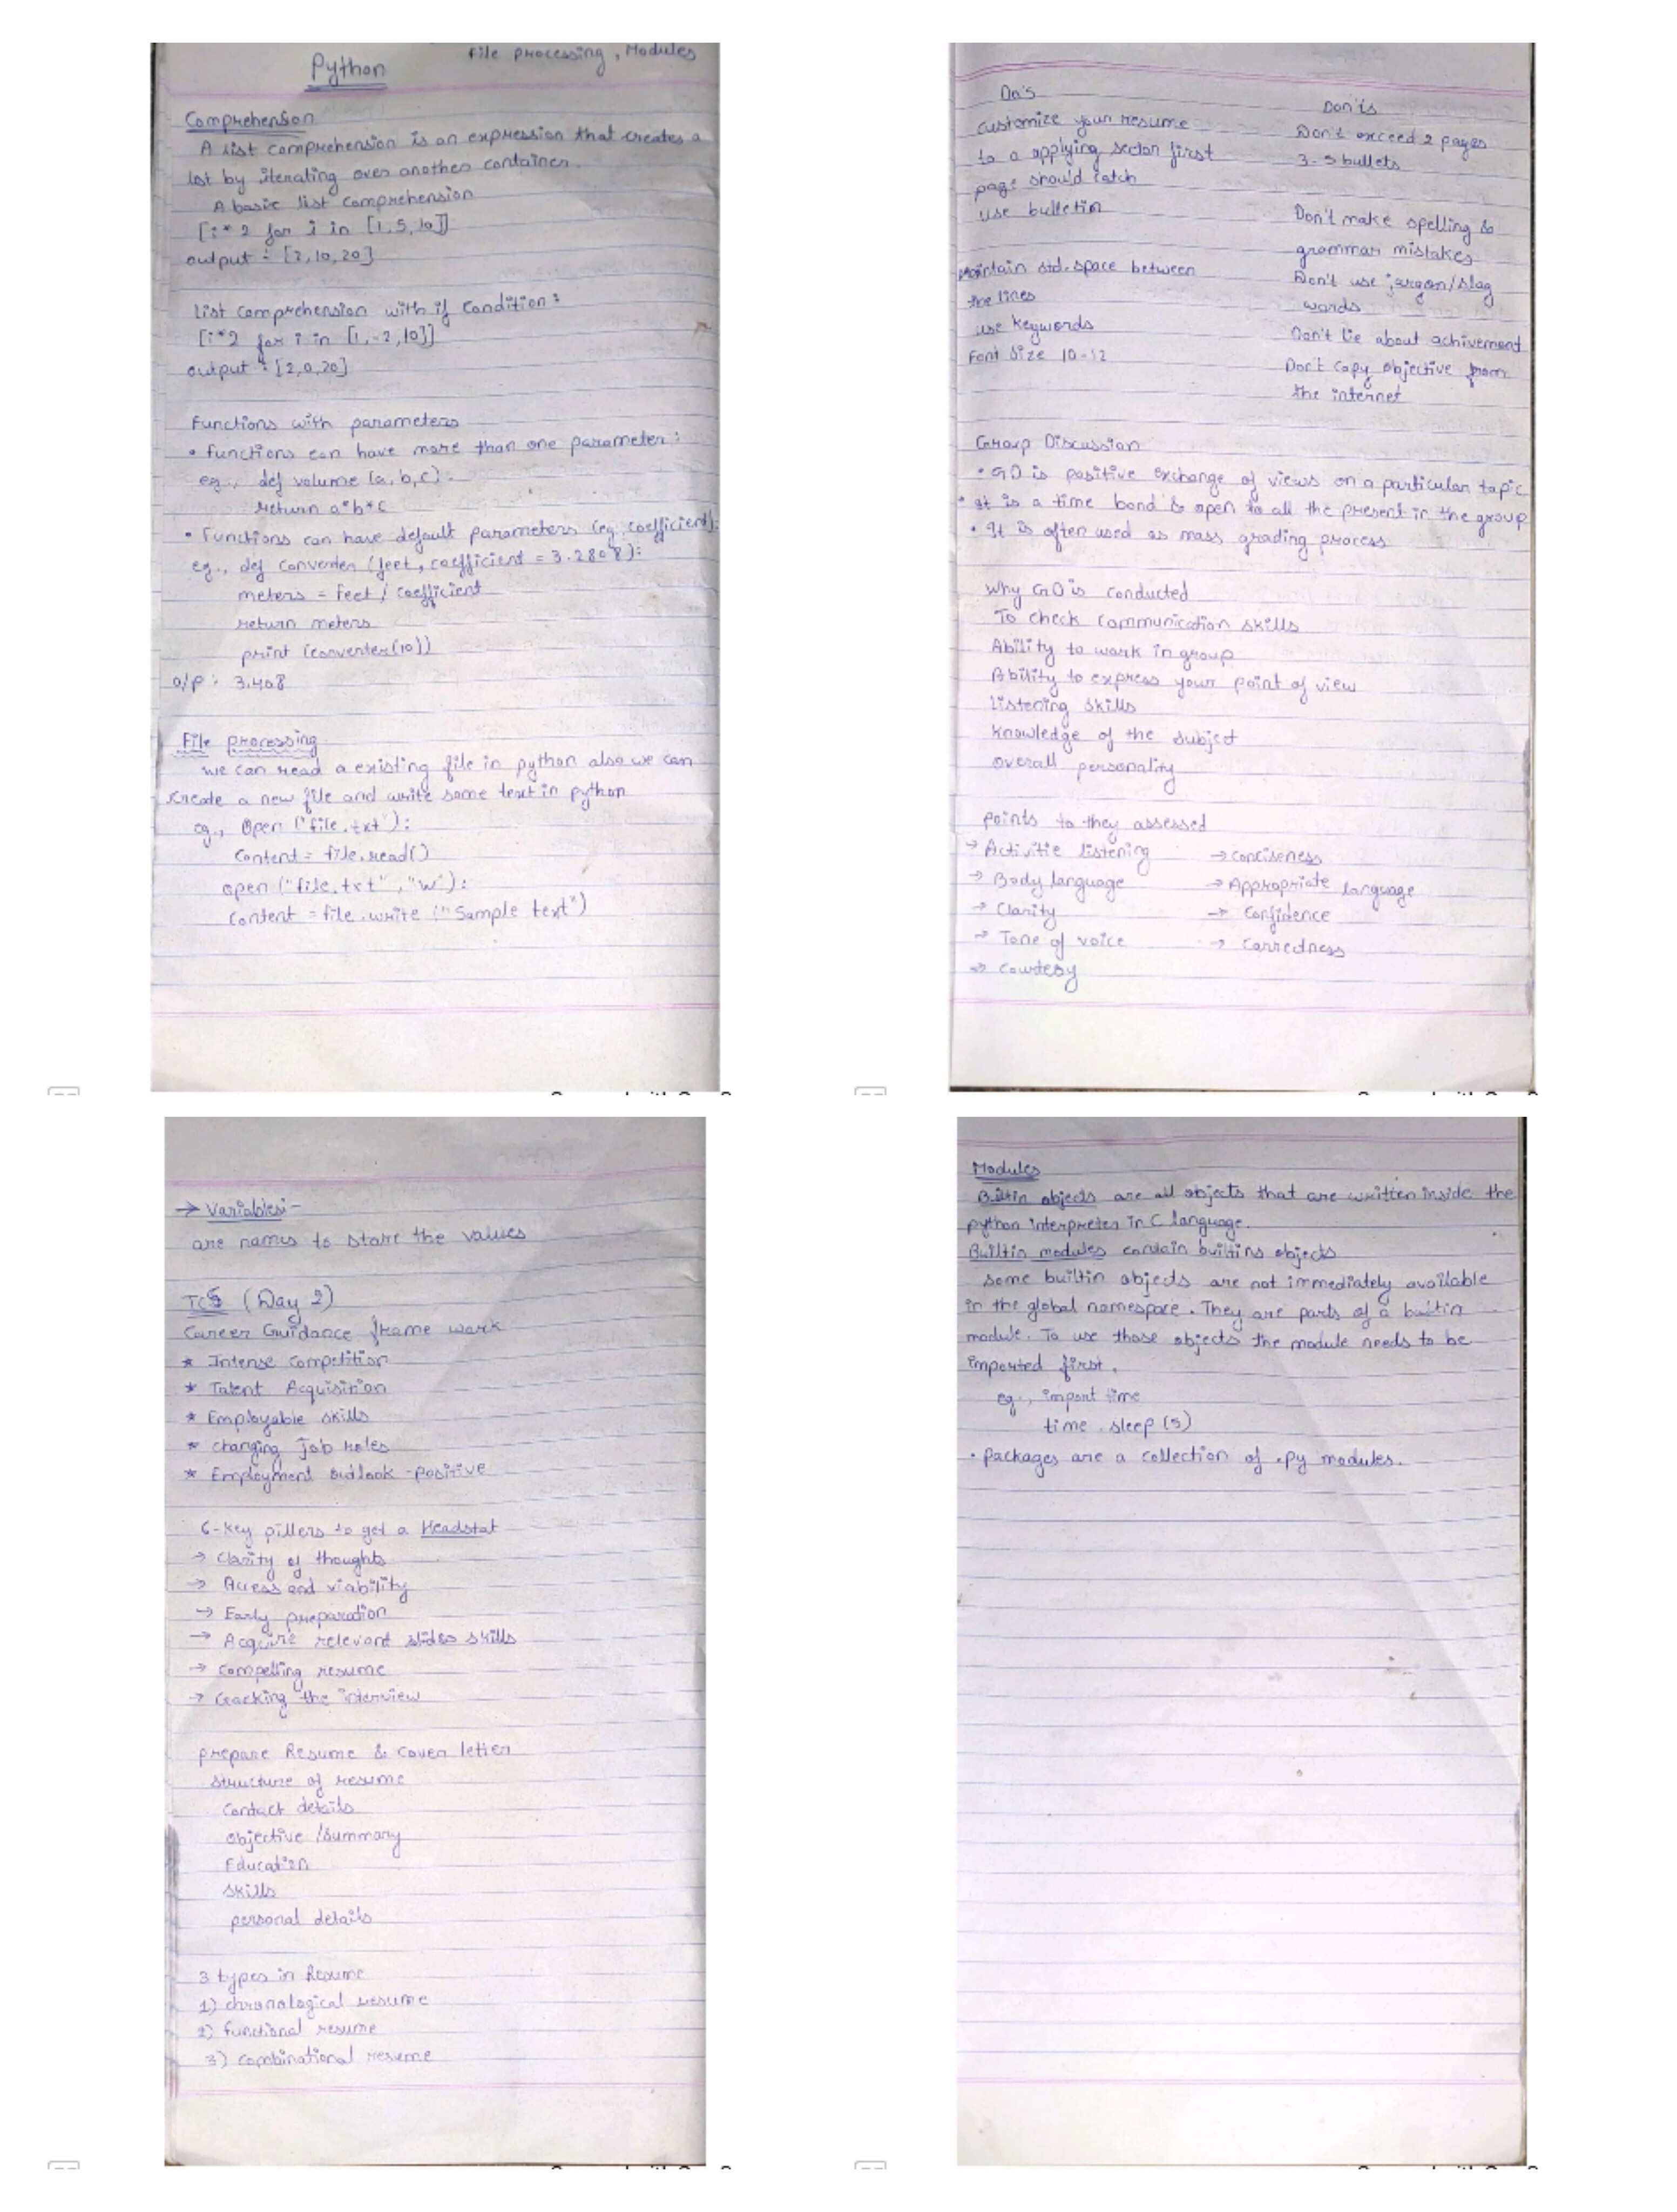 Python
File processing, Modules
Comprehension
A list comprehension is an expression that creates a
list by iterating over another container.
A basic list comprehension
[i*2 for i in [1,5,10]]
output : [2,10,20]
List comprehension with if condition:
[i*2 for i in [1,-2,10]]
output : [2,0,20]
Functions with parameters
• functions can have more than one parameter:
eg., def volume (a,b,c):
return a*b*c
• Functions can have default parameters (eg. coefficient):
eg., def converter (feet, coefficient = 3.2808):
meters = feet / coefficient
return meters
print (converter(10))
o/p : 3.408
File processing
we can read a existing file in python also we can
create a new file and write some text in python
eg., Open ("file.txt"):
Content = file.read()
open ("file.txt", "w"):
Content = file.write ("Sample text")
Do's
Don'ts
customize your resume
to a applying sector first
page should catch
use bulletin
Maintain std. space between
the lines
use keywords
Font size 10-12
Don't exceed 2 pages
3-5 bullets
Don't make spelling &
grammar mistakes
Don't use jargon/slag
words
Don't lie about achivement
Don't copy objective from
the internet
Group Discussion
• GD is positive exchange of views on a particular topic
• It is a time bond & open to all the present in the group
• It is often used as mass grading process
Why GD is conducted
To check communication skills
Ability to work in group
Ability to express your point of view
listening skills
knowledge of the subject
overall personality
points to they assessed
→ Activitie listening → conciseness
→ Body language → Appropriate language
→ Clarity → Confidence
→ Tone of voice → Carredness
→ Courtesy
→ Variables:-
are names to store the values
TCS (Day 2)
Career Guidance frame work
* Intense competition
* Talent Acquisition
* Employable skills
* changing job roles
* Employment outlook -positive
6-key pillers to get a Headstat
→ Clarity of thoughts
→ Access and viability
→ Early preparation
→ Acquire relevant skills
→ compelling resume
→ Cracking the interview
prepare Resume & Cover letter
structure of resume
Contact details
objective /summary
Education
skills
personal details
3 types in Resume
1) chronological resume
2) functional resume
3) combinational resume
Modules
Builtin objects are all objects that are written inside the
python interpreter in C language.
Builtin modules contain builtins objects
some builtin objects are not immediately available
in the global namespace. They are parts of a builtin
module. To use those objects the module needs to be
imported first.
eg., import time
time.sleep(5)
• packages are a collection of .py modules.